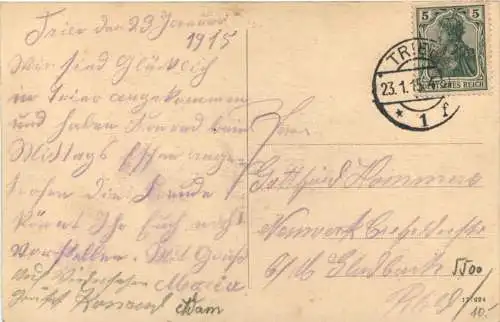 Trier den 23 Januar
1915
Wir sind Glücklich
in Trier angekommen
und haben Konrad beim
Mittags Essen ange-
trofen die Freude
könnt Ihr Euch nicht
vorstellen. Mit Gruß
auf Wiedersehen Maria
Konrad
5
5
DEUTSCHES REICH
TRIER
23.1.15
* 1 f
Herrn
Gottfried Kommer
Neuwerk
b/M Gladbach
5500
10.-